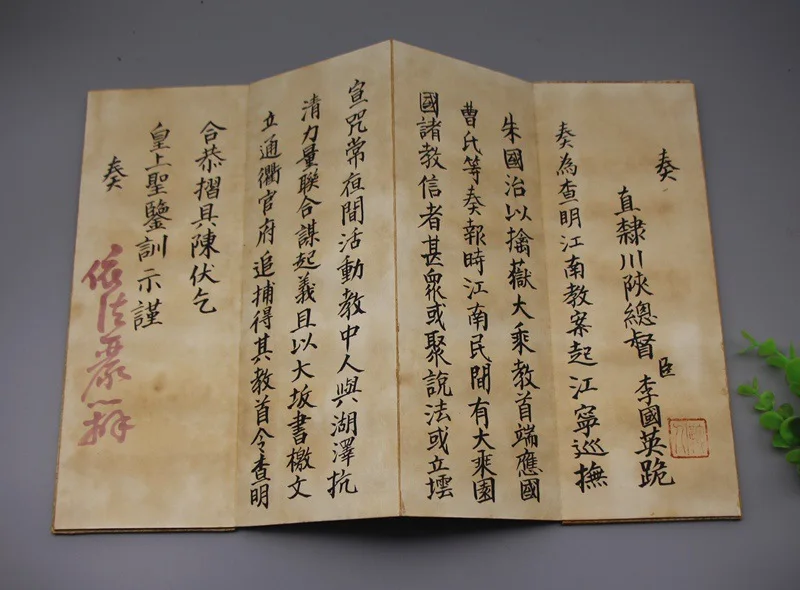 奏
直隸川陝總督臣李國英跪
奏為查明江南教案起江寧巡撫
朱國治以擒嶽大乘教首端應國
曹氏等奏報時江南民間有大乘園
國諸教信者甚眾或聚說法或立壇
宣咒常夜間活動教中人與湖澤抗
清力量聯合謀起義且以大坂書檄文
立通衢官府追捕得其教首令查明
合恭摺具陳伏乞
皇上聖鑒訓示謹
奏
依法嚴辦